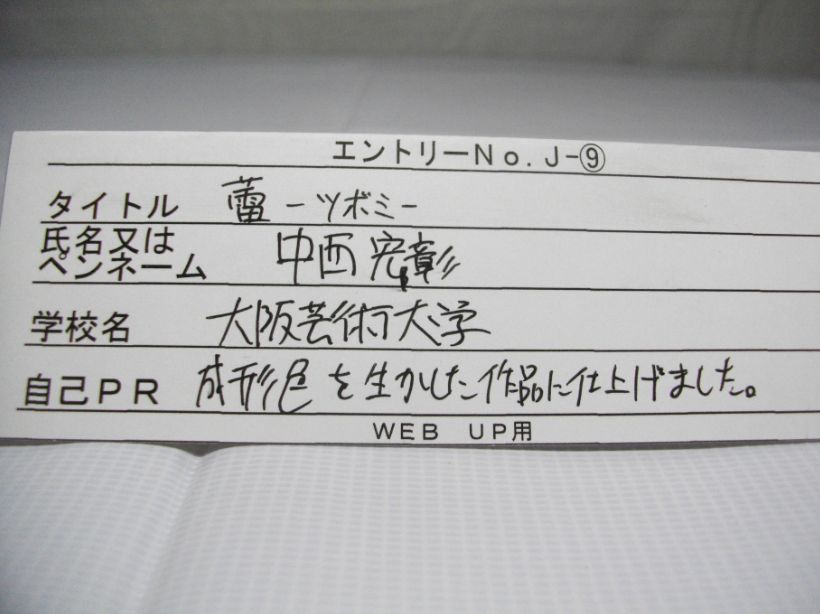 エントリーNo.J-⑨
タイトル 蕾 -ツボミ-
氏名又は
ペンネーム 中西宏彰
学校名 大阪芸術大学
自己PR 成形色を生かした作品に仕上げました。
WEB UP用